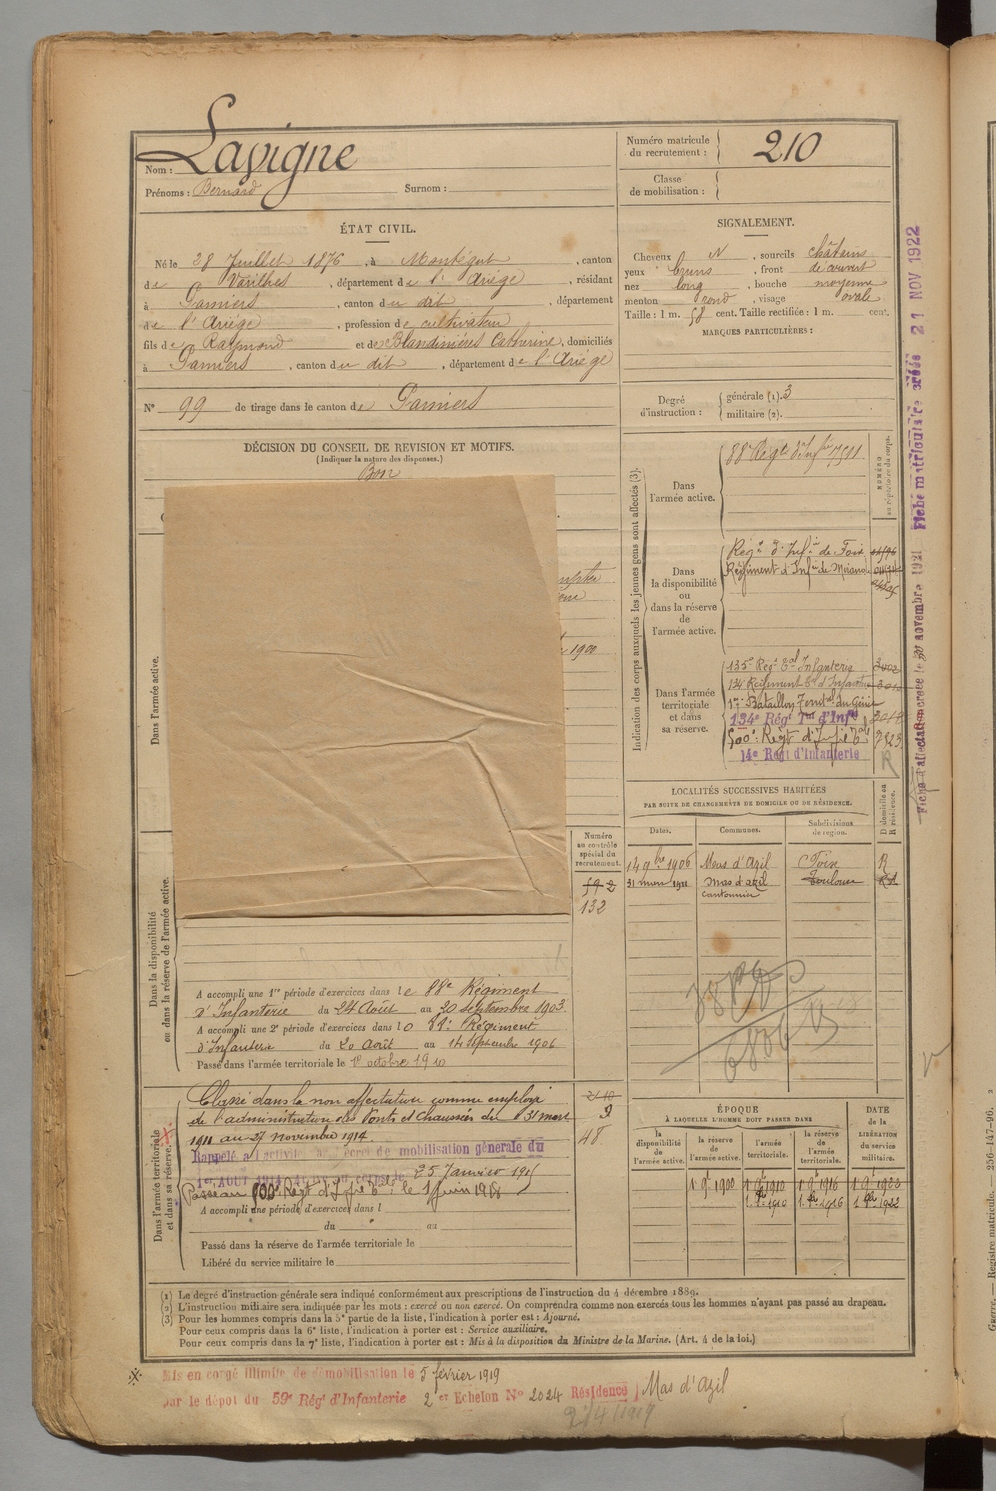 Nom : Lavigne
Prénoms : Bernard Surnom :
Numéro matricule du recrutement : 210
Classe de mobilisation :
ÉTAT CIVIL.
Né le 28 Juillet 1876, à Montégut, canton
de Varilhes, département de l'Ariège, résidant
à Pamiers, canton du dit, département
de l'Ariège, profession de cultivateur
fils de Raymond et de Blandinières Catherine, domiciliés
à Pamiers, canton du dit, département de l'Ariège
N° 99 de tirage dans le canton de Pamiers
SIGNALEMENT.
Cheveux N, sourcils châtains
yeux bruns, front découvert
nez long, bouche moyenne
menton rond, visage ovale
Taille : 1 m. 58 cent. Taille rectifiée : 1 m. cent.
MARQUES PARTICULIÈRES :
Degré d'instruction : générale (1). 3
militaire (2).
DÉCISION DU CONSEIL DE REVISION ET MOTIFS.
(Indiquer la nature des dispenses.)
Bon
1900
Dans l'armée active.
Indication des corps auxquels les jeunes gens sont affectés (3).
NUMÉRO au répertoire du corps.
Dans l'armée active.
88e Régt d'Infrie 7511
Dans la disponibilité ou dans la réserve de l'armée active.
Régt d'Infie de Foix
Régiment d'Infie de Mirande
Dans l'armée territoriale et dans sa réserve.
135e Régt Tal Infanterie
134 Régiment Tal d'Infanterie
1er Bataillon Territal du Génie
134e Régt Tal d'Infie
500e Regt d'Infie Tal 7823
14e Regt d'Infanterie
R
LOCALITÉS SUCCESSIVES HABITÉES
PAR SUITE DE CHANGEMENTS DE DOMICILE OU DE RÉSIDENCE.
Dates. Communes. Subdivisions de région. D domicile ou R résidence.
14 9bre 1906 Mas d'Azil Foix R
31 mars 1911 Mas d'azil Toulouse
cantonnier
Numéro au contrôle spécial du recrutement.
59-2
132
Dans la disponibilité ou dans la réserve de l'armée active.
A accompli une 1re période d'exercices dans le 88e Régiment
d'Infanterie du 24 Août au 20 septembre 1903
A accompli une 2e période d'exercices dans le 88e Régiment
d'Infanterie du 20 Août au 14 Septembre 1906
Passé dans l'armée territoriale le 1er octobre 1910
Dans l'armée territoriale et dans sa réserve.
Classé dans la non affectation comme employé
de l'administration des Ponts et chaussées du 31 mars
1911 au 27 novembre 1914.
Rappelé à l'activité décret de mobilisation générale du
1er AOUT 1914 25 Janvier 1915
Passé au 500e Regt d'Infie Tle le 1 Juin 1918
A accompli une période d'exercices dans l
du au
Passé dans la réserve de l'armée territoriale le
Libéré du service militaire le
9
48
ÉPOQUE
À LAQUELLE L'HOMME DOIT PASSER DANS
DATE de la LIBÉRATION du service militaire.
la disponibilité de l'armée active. la réserve de l'armée active. l'armée territoriale. la réserve de l'armée territoriale.
1 9bre 1900 1 9bre 1910 1 9bre 1916 1 9bre 1922
1 8bre 1910 1 8bre 1916 1 8bre 1922
(1) Le degré d'instruction générale sera indiqué conformément aux prescriptions de l'instruction du 4 décembre 1889.
(2) L'instruction militaire sera indiquée par les mots : exercé ou non exercé. On comprendra comme non exercés tous les hommes n'ayant pas passé au drapeau.
(3) Pour les hommes compris dans la 5e partie de la liste, l'indication à porter est : Ajourné.
Pour ceux compris dans la 6e liste, l'indication à porter est : Service auxiliaire.
Pour ceux compris dans la 7e liste, l'indication à porter est : Mis à la disposition du Ministre de la Marine. (Art. 4 de la loi.)
Mis en congé illimité de démobilisation le 5 février 1919
par le dépôt du 59e Régt d'Infanterie 2e Echelon N° 2024 Résidence Mas d'Azil
2/4/1919
Fiche matriculaire créée 21 NOV 1922
Guerre. — Registre matricule. — 256-147-96.